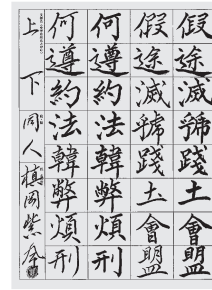 假途滅虢踐土會盟
假途滅虢踐土會盟
何遵約法韓弊煩刑
何遵約法韓弊煩刑
上下
同人